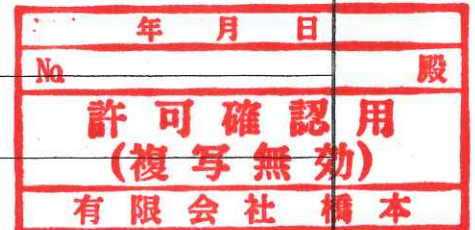 年 月 日
No. 殿
許可確認用
(複写無効)
有限会社 橋本